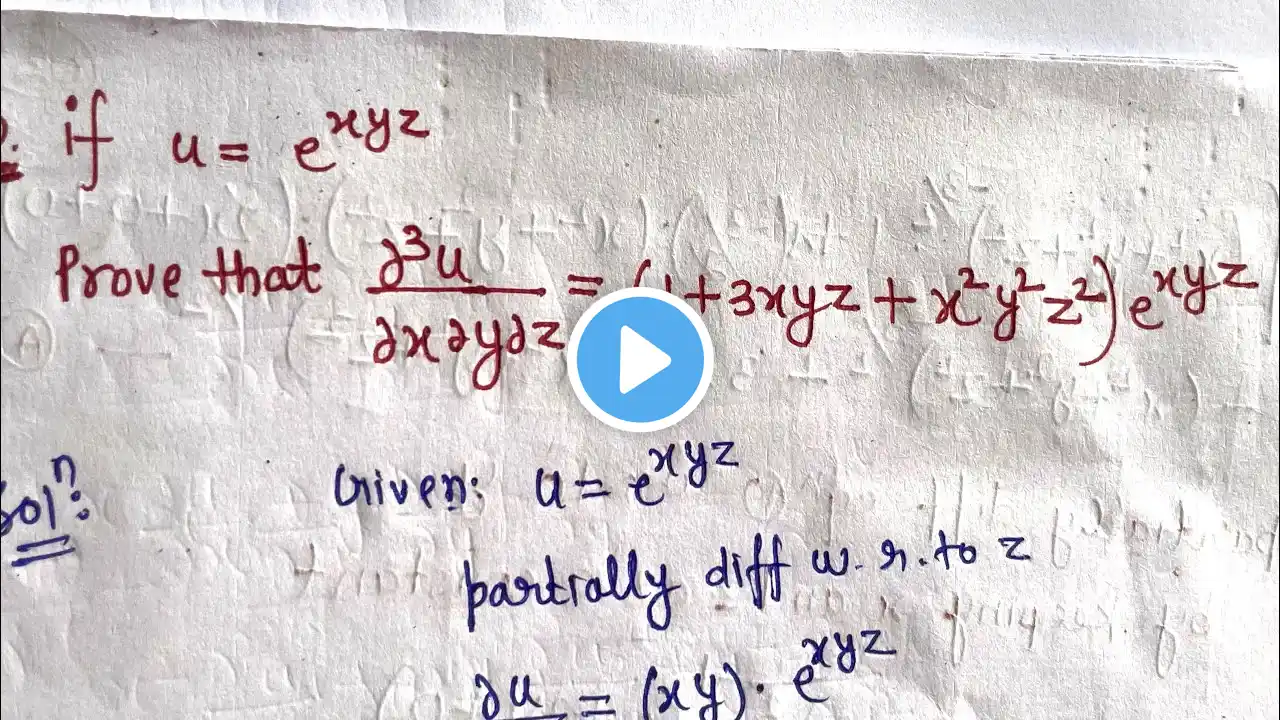 if u = e^xyz
Prove that ∂³u/∂x∂y∂z = (1+3xyz+x²y²z²)e^xyz
Solⁿ: Given: u = e^xyz
partially diff w.r.to z
∂u = (xy)· e^xyz